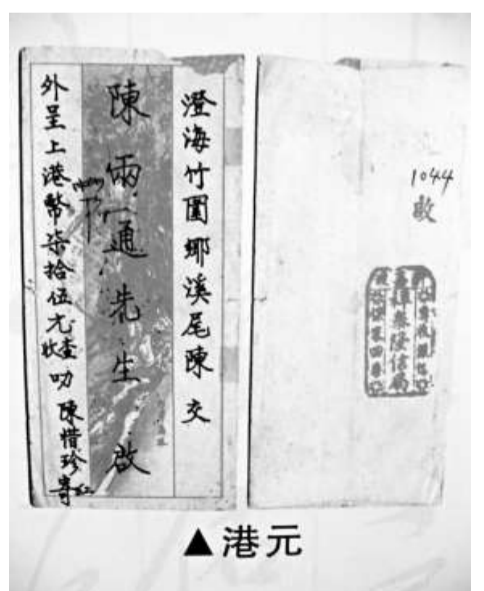 澄海竹圍鄉溪尾陳 交
陳兩通先生 啟
外呈上港幣柒拾伍元查收叻 陳惜珍寄
1044
▲港元